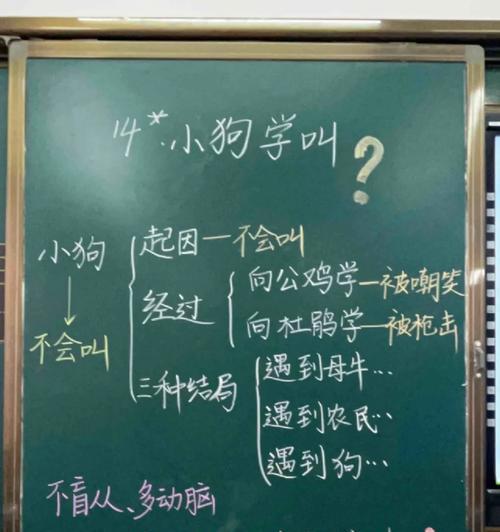 14*.小狗学叫?
小狗
不会叫
起因—不会叫
经过
向公鸡学—被嘲笑
向杜鹃学—被枪击
三种结局
遇到母牛…
遇到农民…
遇到狗…
不盲从、多动脑